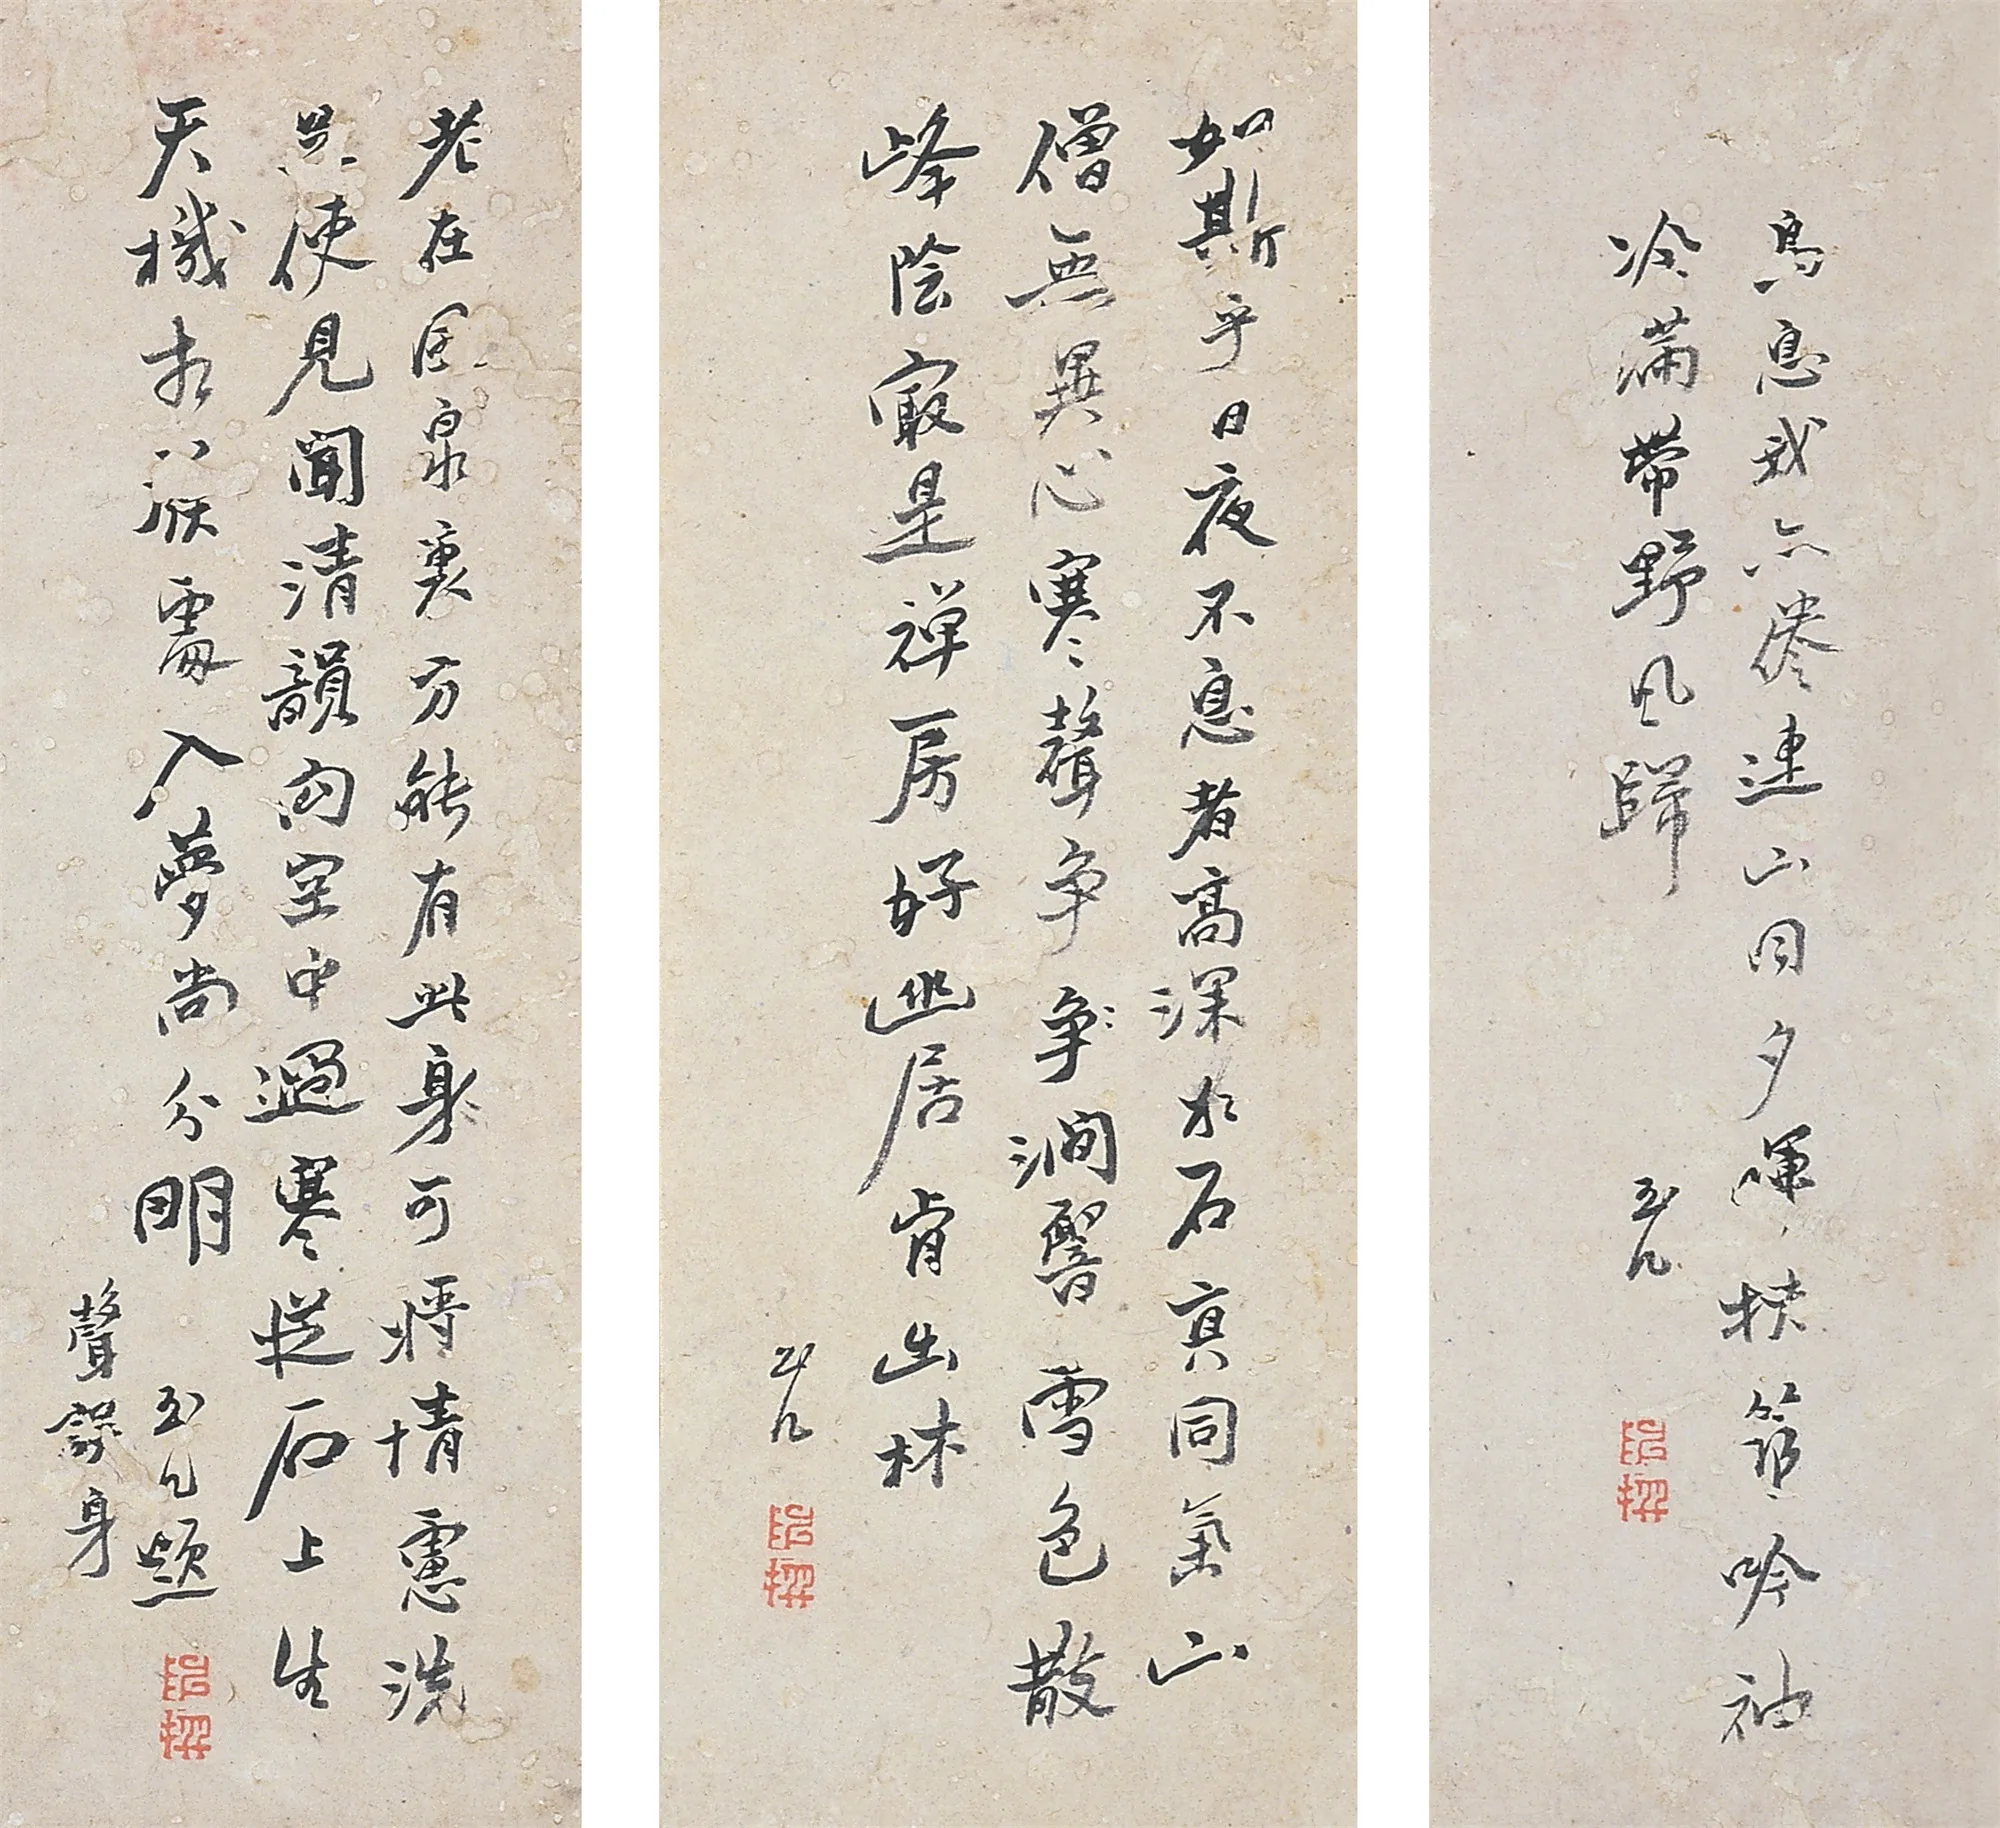 鳥息我亦倦連山同夕暉扶筇吟袖
冷滿帶野風歸
玉几
如斯乎日夜不息者高深水石真同氣山
僧無異心寒聲爭爭澗響雪色散
峰陰最是禪房好幽居肯出林
玉几
老在風泉裏方能有此身可將情慮洗
只使見聞清韻向空中過寒從石上生
天機相
入夢尚分明
玉几題
聲誤身